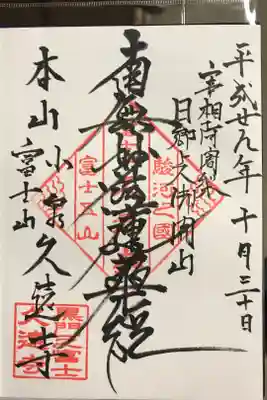 平成廿九年 十月三十日
宰相阿闍梨
日郷上人開山
南無妙法蓮華経
駿河之國
富士五山
本山小泉久遠寺
富士山
久遠寺